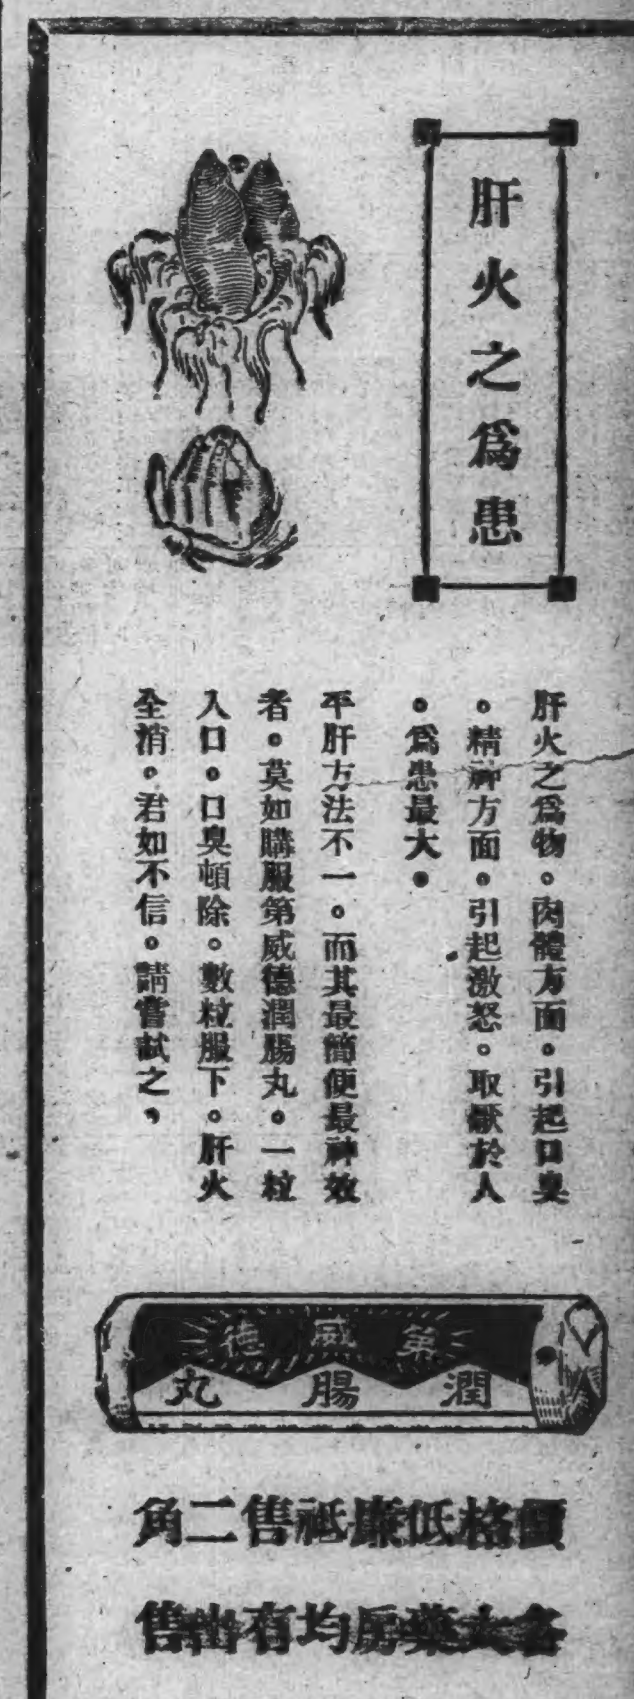 肝火之爲患
肝火之爲物。肉體方面。引起口臭
。精神方面。引起激怒。取厭於人
。爲患最大。
平肝方法不一。而其最簡便最神效
者。莫如購服第威德潤腸丸。一粒
入口。口臭頓除。數粒服下。肝火
全消。君如不信。請嘗試之，
第威德
潤腸丸
價格低廉祗售二角
各大藥房均有出售